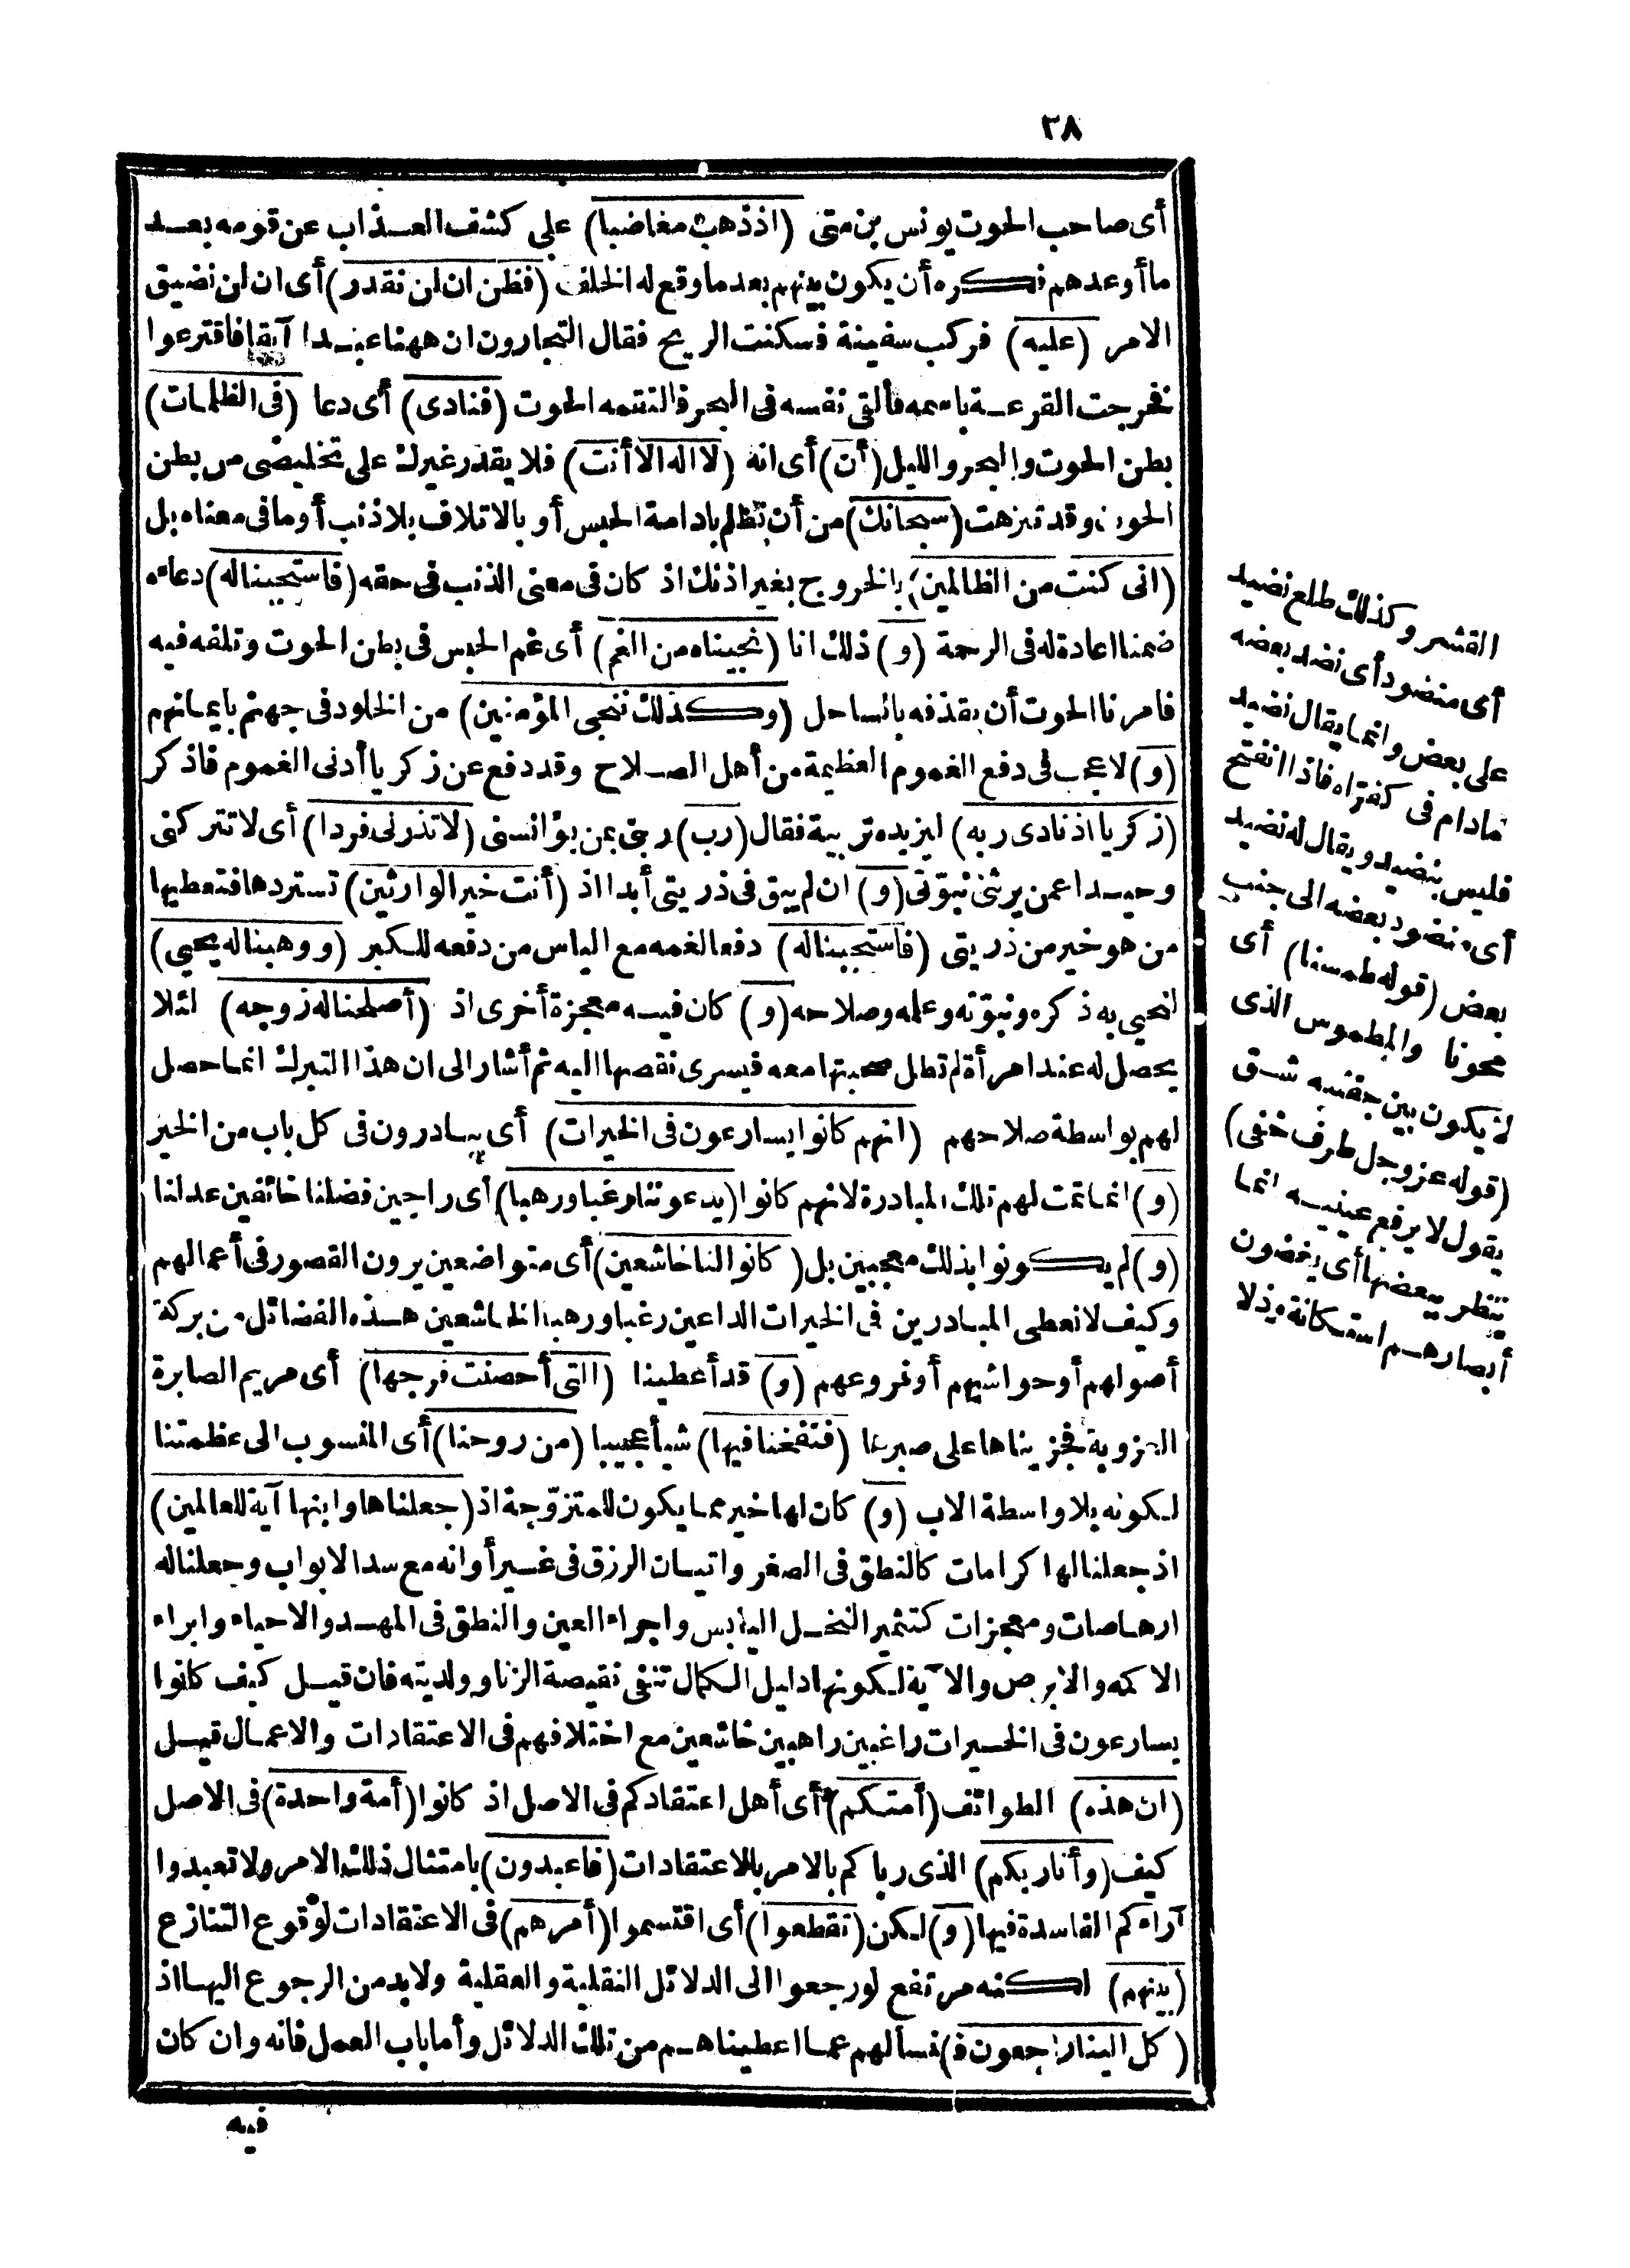 ٢٨
أى صاحب الحوت يونس بن متى (اذ ذهب مغاضبا) على كشف العذاب عن قومه بعد
ما أوعدهم فكره أن يكون بينهم بعد ما وقع له الخلف (فظن ان لن نقدر) أى ان لن نضيق
الامر (عليه) فركب سفينة فسكنت الريح فقال التجارون ان ههنا عبدا آبقا فاقترعوا
فخرجت القرعة باسمه فألقى نفسه فى البحر فالتقمه الحوت (فنادى) أى دعا (فى الظلمات)
بطن الحوت والبحر والليل (أن) أى انه (لا اله الا أنت) فلا يقدر غيرك على تخليصى من بطن
الحوت وقد تنزهت (سبحانك) من أن تظلم بادامة الحبس أو بالاتلاف بلا ذنب أو ما فى معناه بل
(انى كنت من الظالمين) بالخروج بغير اذنك اذ كان فى معنى الذنب فى حقه (فاستجبنا له) دعاءه
ضمنا اعادة له فى الرحمة (و) ذلك انا (نجيناه من الغم) أى غم الحبس فى بطن الحوت وتلفه فيه
فامرنا الحوت أن يقذفه بالساحل (وكذلك ننجى المؤمنين) من الخلود فى جهنم بايمانهم
(و) لا عجب فى دفع الغموم العظيمة من أهل الصلاح وقد دفع عن زكريا أدنى الغموم فاذكر
(زكريا اذ نادى ربه) ليزيده تربية فقال (رب) ربنى بمن يؤانسنى (لا تذرنى فردا) أى لا تتركنى
وحيدا عمن يرثنى نبوتى (و) ان لم يبق فى ذريتى أبدا اذ (أنت خير الوارثين) تستردها فتعطيها
من هو خير من ذريتى (فاستجبنا له) دفعا لغمه مع الياس من دفعه للكبر (ووهبنا له يحيى)
لنحيى به ذكره ونبوته وعلمه وصلاحه (و) كان فيه معجزة أخرى اذ (أصلحنا له زوجه) لئلا
يحصل له عند امرأة لم تطل صحبتها معه فيسرى نقصها اليه ثم أشار الى ان هذا التبرك انما حصل
لهم بواسطة صلاحهم (انهم كانوا يسارعون فى الخيرات) أى يبادرون فى كل باب من الخير
(و) انما تمت لهم تلك المبادرة لانهم كانوا (يدعوننا رغبا ورهبا) أى راجين فضلنا خائفين عدلنا
(و) لم يكونوا بذلك معجبين بل (كانوا لنا خاشعين) أى متواضعين يرون القصور فى أعمالهم
وكيف لا نعطى المبادرين فى الخيرات الداعين رغبا ورهبا الخاشعين هذه الفضائل من بركة
أصولهم أو حواشيهم أو فروعهم (و) قد أعطينا (التى أحصنت فرجها) أى مريم الصابرة
العزوبة فجزيناها على صبرها (فنفخنا فيها) شيأ عجيبا (من روحنا) أى المنسوب الى عظمتنا
لكونه بلا واسطة الاب (و) كان لها خير مما يكون للمتزوجة اذ (جعلناها وابنها آية للعالمين)
اذ جعلنا لها كرامات كالنطق فى الصغر واتيان الرزق فى غير أوانه مع سد الابواب وجعلنا له
ارهاصات ومعجزات كتثمير النخل اليابس واجراء العين والنطق فى المهد والاحياء وابراء
الاكمه والابرص والآية لكونها دليل الكمال تنفى نقيصة الزنا وولديته فان قيل كيف كانوا
يسارعون فى الخيرات راغبين راهبين خاشعين مع اختلافهم فى الاعتقادات والاعمال قيل
(ان هذه) الطوائف (أمتكم) أى أهل اعتقادكم فى الاصل اذ كانوا (أمة واحدة) فى الاصل
كيف (وأنا ربكم) الذى رباكم بالامر بالاعتقادات (فاعبدون) بامتثال ذلك الامر ولا تعبدوا
آراءكم الفاسدة فيها (و) لكن (تقطعوا) أى اقتسموا (أمرهم) فى الاعتقادات لوقوع التنازع
(بينهم) لكنه مرتفع لو رجعوا الى الدلائل النقلية والعقلية ولا بد من الرجوع اليها اذ
(كل الينا راجعون ف) نسألهم عما اعطيناهم من تلك الدلائل وأما باب العمل فانه وان كان
فيه
القشر وكذلك طلع نضيد
أى منضود أى نضد بعضه
على بعض وانما يقال نضيد
مادام فى كفراه فاذا انفتح
فليس بنضيد ويقال له نضيد
أى منضود بعضه الى جنب
بعض (قوله طمسنا) أى
محونا والمطموس الذى
لا يكون بين جفنيه شق
(قوله عز وجل طرف خفى)
يقول لا يرفع عينيه انما
ينظر ببعضها أى يغضون
أبصارهم استكانة وذلا